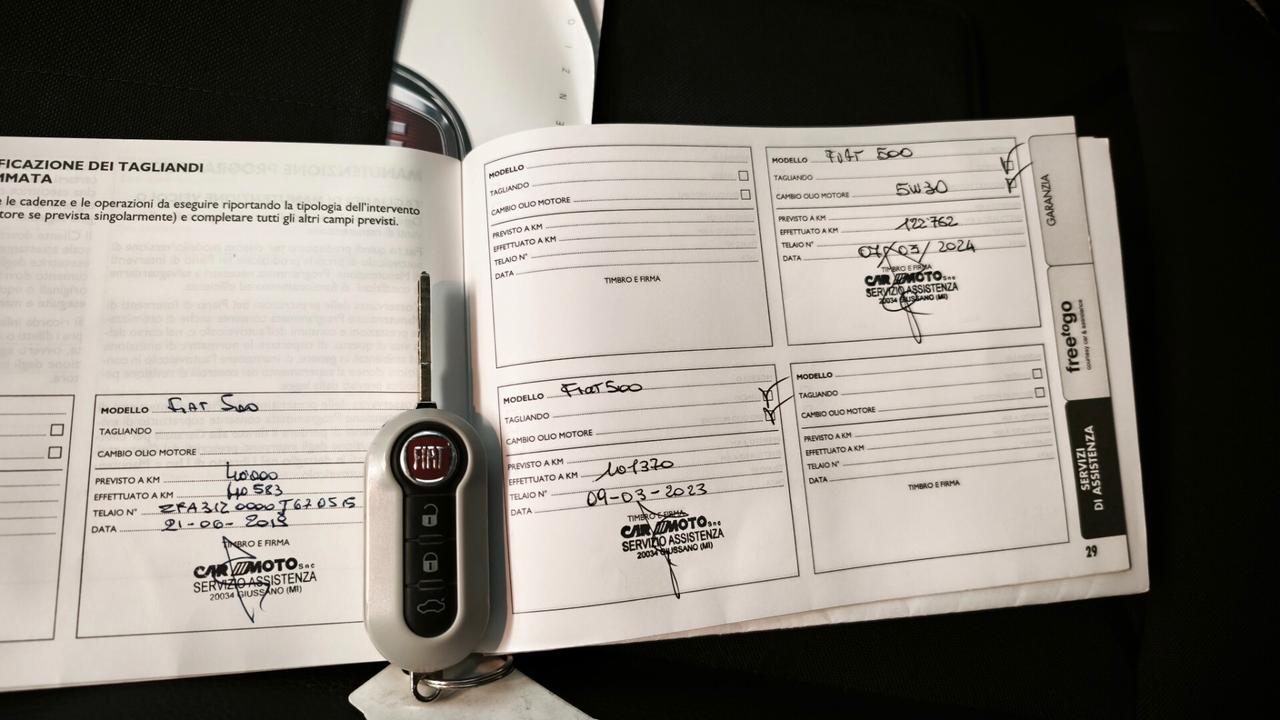 FICAZIONE DEI TAGLIANDI
MMATA
e le cadenze e le operazioni da eseguire riportando la tipologia dell'intervento
tore se prevista singolarmente) e completare tutti gli altri campi previsti.
MODELLO Fiat 500
TAGLIANDO
CAMBIO OLIO MOTORE
PREVISTO A KM 40000
EFFETTUATO A KM 40583
TELAIO N° ZFA3120000J670515
DATA 21-06-2018
TIMBRO E FIRMA
CAR MOTO Snc
SERVIZIO ASSISTENZA
20034 GIUSSANO (MI)
FIAT
MODELLO
TAGLIANDO
CAMBIO OLIO MOTORE
PREVISTO A KM
EFFETTUATO A KM
TELAIO N°
DATA
TIMBRO E FIRMA
MODELLO FIAT 500
TAGLIANDO
CAMBIO OLIO MOTORE 5W30
PREVISTO A KM
EFFETTUATO A KM 122762
TELAIO N°
DATA 07/03/2024
TIMBRO E FIRMA
CAR MOTO Snc
SERVIZIO ASSISTENZA
20034 GIUSSANO (MI)
MODELLO Fiat 500
TAGLIANDO
CAMBIO OLIO MOTORE
PREVISTO A KM
EFFETTUATO A KM 101370
TELAIO N°
DATA 09-03-2023
TIMBRO E FIRMA
CAR MOTO Snc
SERVIZIO ASSISTENZA
20034 GIUSSANO (MI)
MODELLO
TAGLIANDO
CAMBIO OLIO MOTORE
PREVISTO A KM
EFFETTUATO A KM
TELAIO N°
DATA
TIMBRO E FIRMA
GARANZIA
freetogo
courtesy car & assistance
SERVIZI
DI ASSISTENZA
29